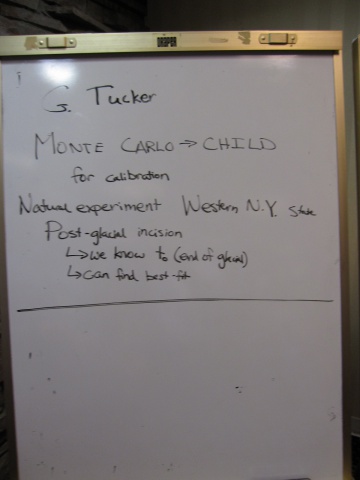 G. Tucker
MONTE CARLO ⇒ CHILD
for calibration
Natural experiment Western N.Y. State
Post-glacial incision
↳ we know t₀ (end of glacial)
↳ can find best-fit